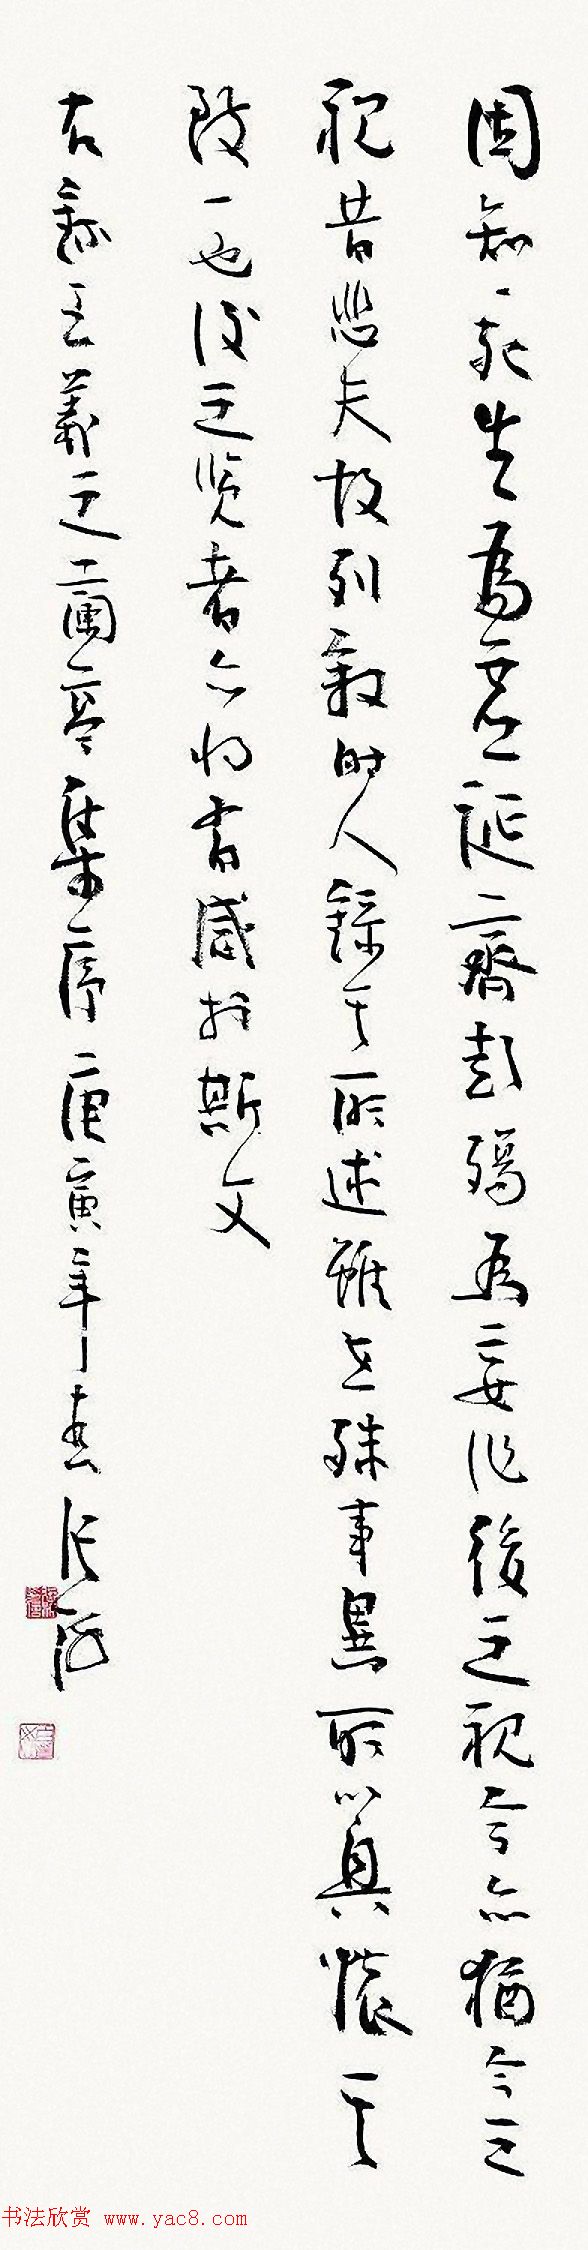 固知一死生為虛誕齊彭殤為妄作後之視今亦猶今之
視昔悲夫故列敘時人錄其所述雖世殊事異所以興懷其
致一也後之覽者亦將有感於斯文
右錄王羲之蘭亭集序庚寅年春張
书法欣赏 www.yac8.com